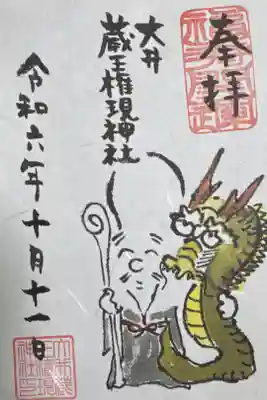 奉拝
大井
蔵王権現神社
令和六年十月十一日